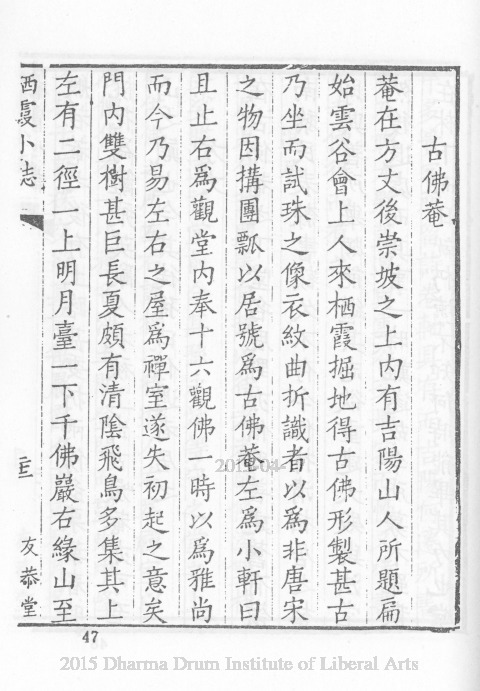 古佛菴
菴在方丈後崇坡之上內有吉陽山人所題扁
始雲谷會上人來栖霞掘地得古佛形製甚古
乃坐而試珠之像衣紋曲折識者以爲非唐宋
之物因搆團瓢以居號爲古佛菴左爲小軒曰
且止右爲觀堂內奉十六觀佛一時以爲雅尚
而今乃易左右之屋爲禪室遂失初起之意矣
門內雙樹甚巨長夏頗有清陰飛鳥多集其上
左有二徑一上明月臺一下千佛巖右緣山至
栖霞小志
友恭堂
47
2015 Dharma Drum Institute of Liberal Arts